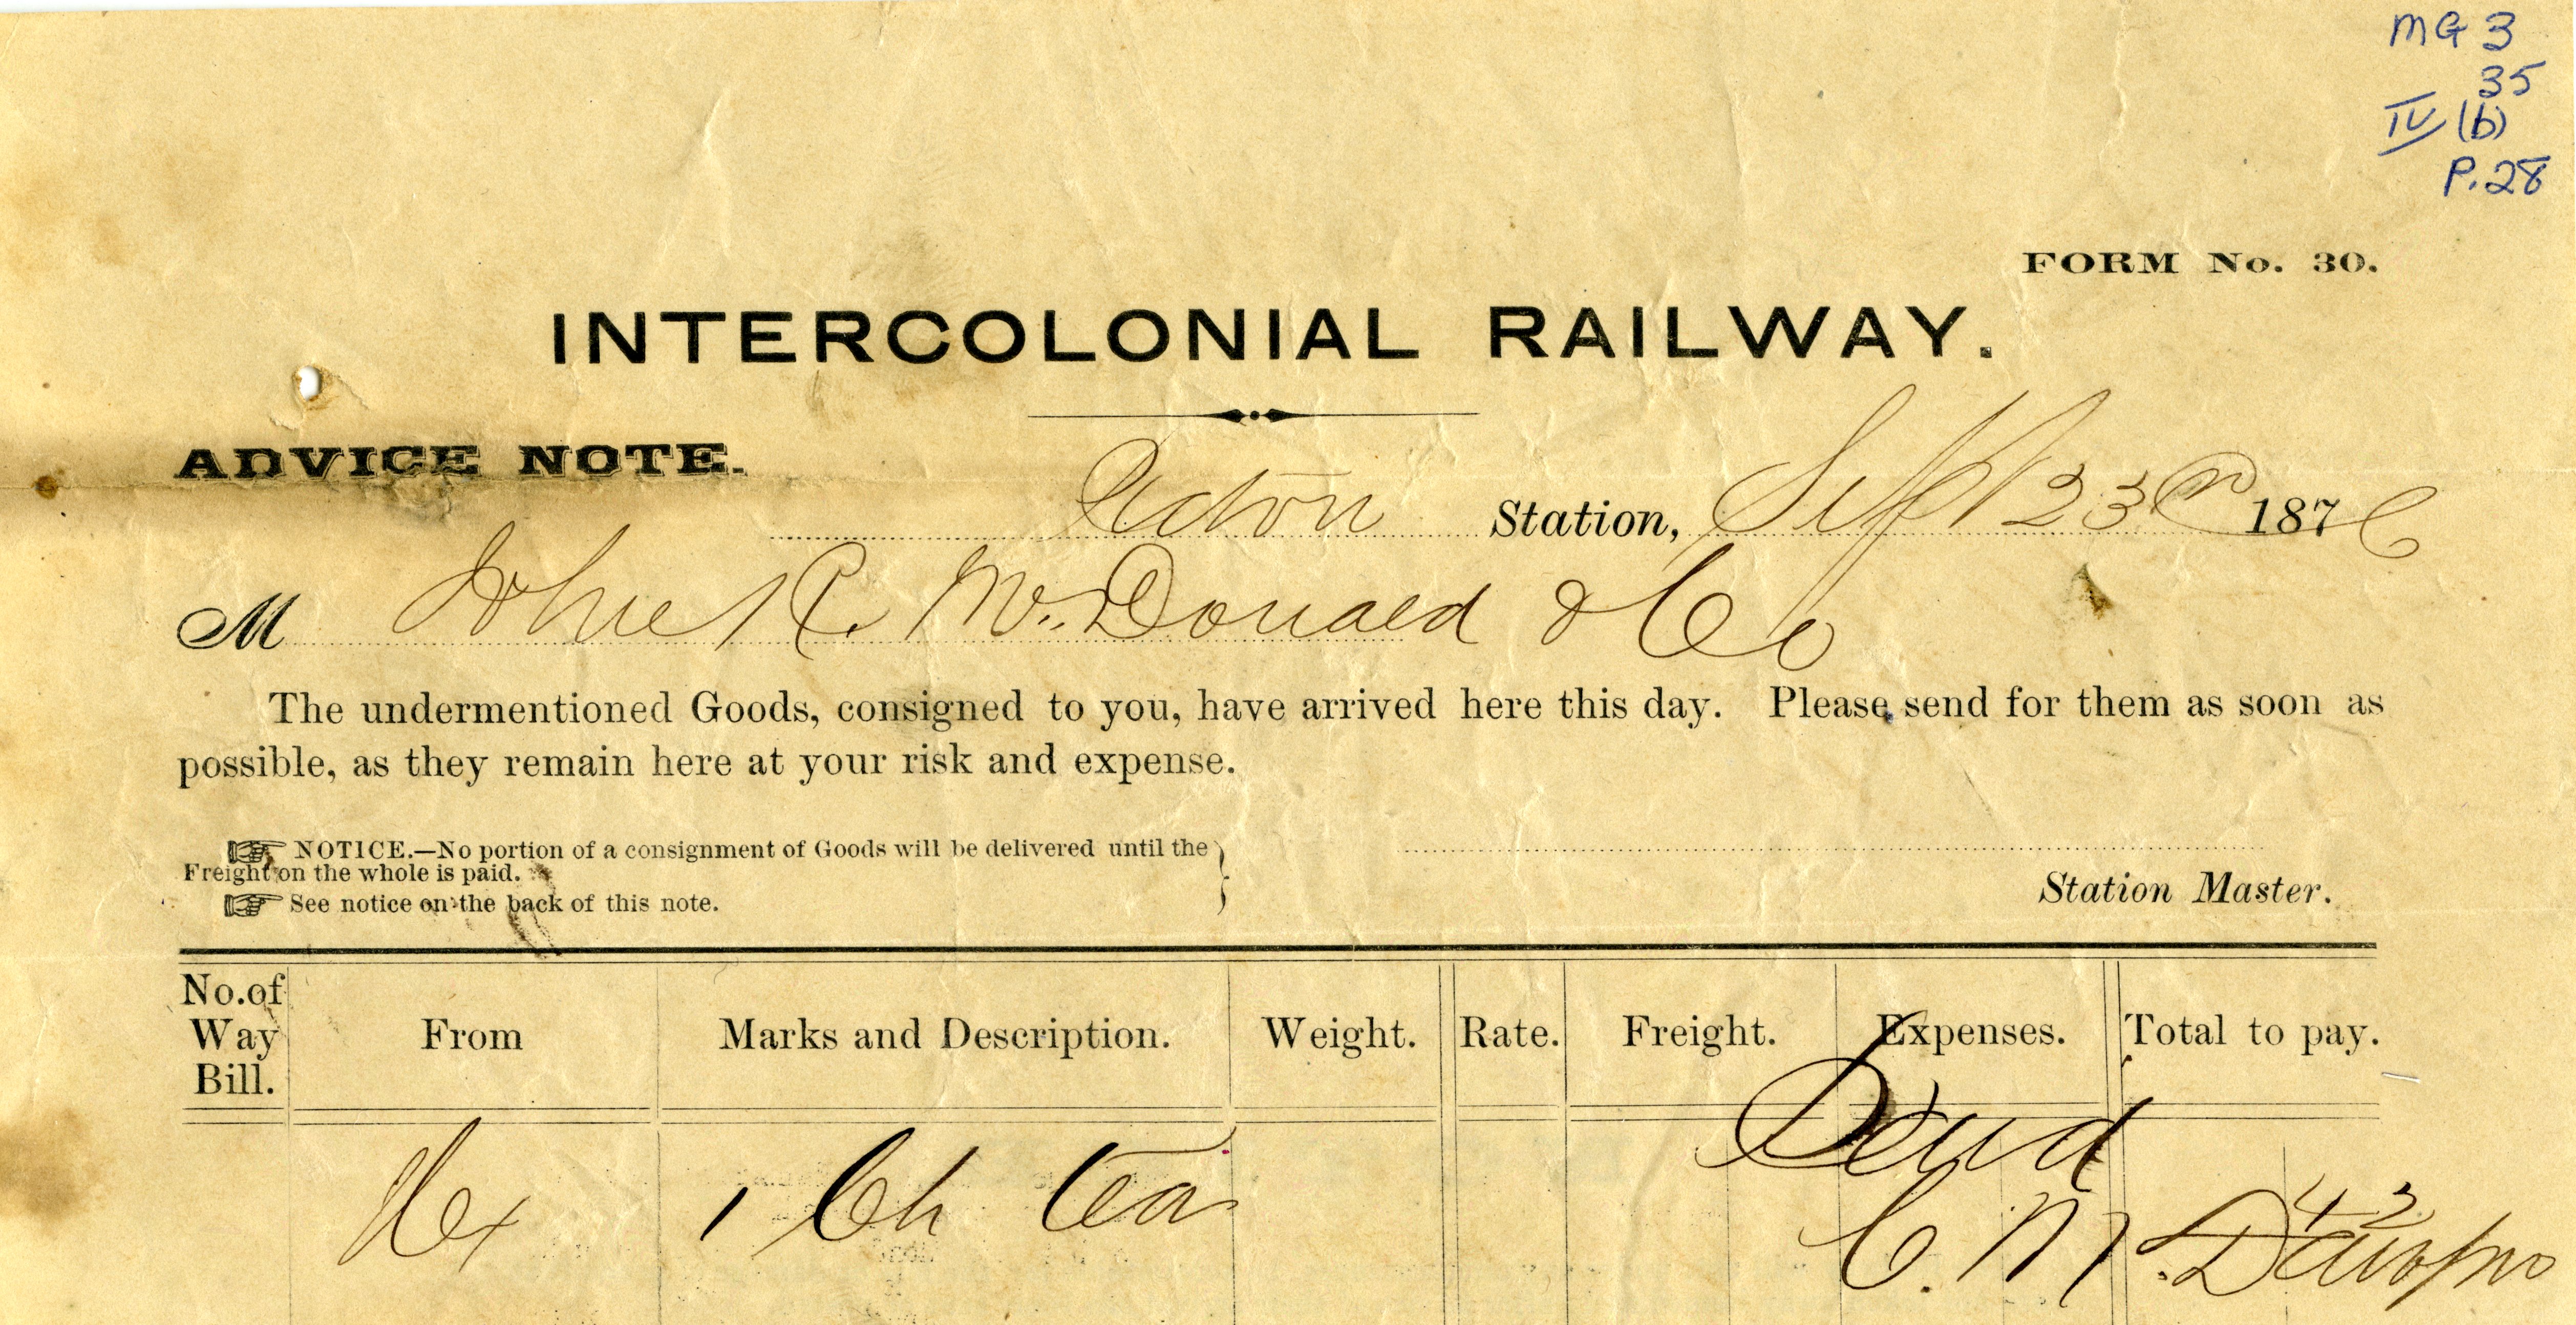 MG 3
35
IV (b)
P. 28
FORM No. 30.
INTERCOLONIAL RAILWAY.
ADVICE NOTE.
Station, Sept 23 1876
M John R. McDonald & Co
The undermentioned Goods, consigned to you, have arrived here this day. Please send for them as soon as
possible, as they remain here at your risk and expense.
☞ NOTICE.—No portion of a consignment of Goods will be delivered until the
Freight on the whole is paid.
☞ See notice on the back of this note.
Station Master.
No. of Way Bill. From Marks and Description. Weight. Rate. Freight. Expenses. Total to pay.
Hx 1 Ch Tea 42
C. M.